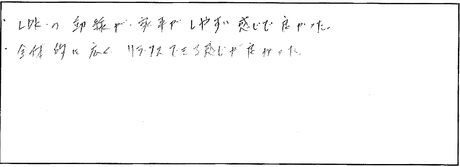 ・LDKの動線が家事がしやすい感じで良かった。
・全体的に広くリラックスできる感じが良かった。